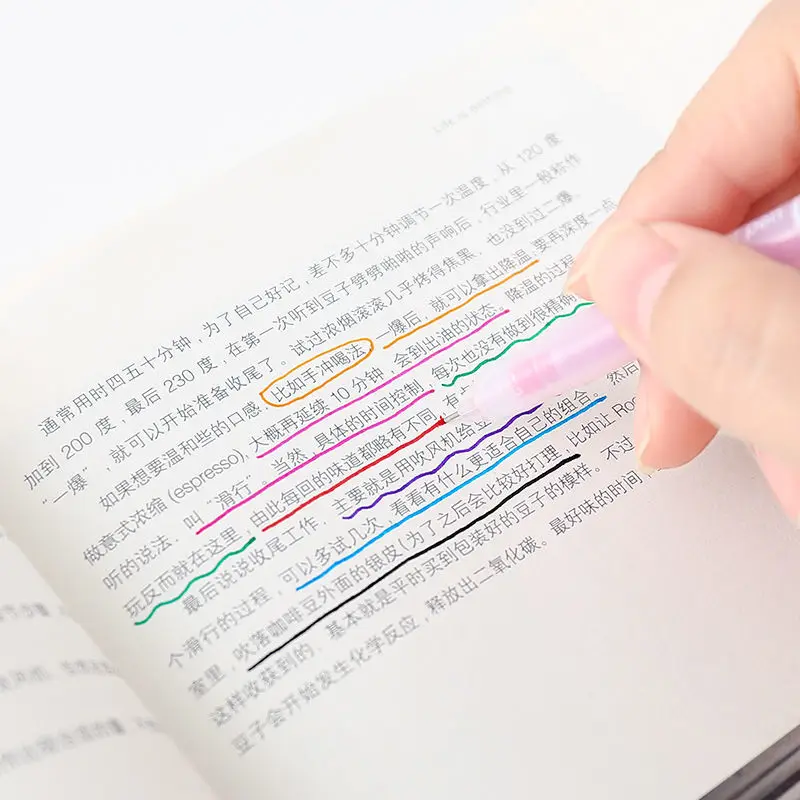 通常用时四五十分钟，为了自己好记，差不多十分钟调节一次温度，从 120 度
加到 200 度，最后 230 度，在第一次听到豆子劈劈啪啪的声响后，行业里一般称作
“一爆”，就可以开始准备收尾了。试过浓烟滚滚几乎烤得焦黑，也没到过二爆。
如果想要温和些的口感，比如手冲喝法，一爆后，就可以拿出降温，要再深度一点
做意式浓缩 (espresso)，大概再延续 10 分钟，会到出油的状态。降温的过程
听的说法，叫“滑行”。当然，具体的时间控制，每次也没有做到很精确
玩反而就在这里，由此每回的味道都略有不同，有
最后说说收尾工作，主要就是用吹风机给
个滑行的过程，可以多试几次，看看有什么更适合自己的组合。然后
室里，吹落咖啡豆外面的银皮(为了之后会比较好打理，比如让
这样收获到的，基本就是平时买到包装好的豆子的模样。不过
豆子会开始发生化学反应，释放出二氧化碳。最好味的时间，